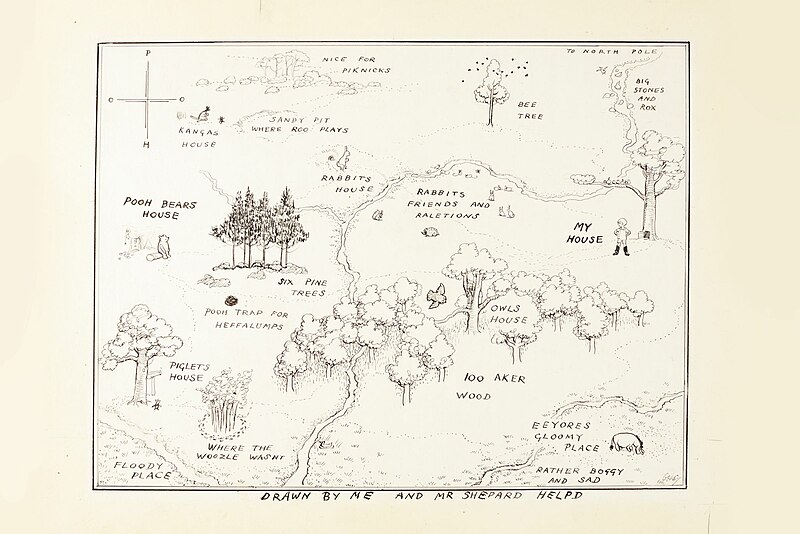 TO NORTH POLE
P
O O
H
NICE FOR
PIKNICKS
BEE
TREE
BIG
STONES
AND
ROX
KANGAS
HOUSE
SANDY PIT
WHERE ROO PLAYS
RABBITS
HOUSE
RABBITS
FRIENDS AND
RALETIONS
POOH BEARS
HOUSE
MY
HOUSE
SIX PINE
TREES
POOH TRAP FOR
HEFFALUMPS
OWLS
HOUSE
PIGLETS
HOUSE
100 AKER
WOOD
WHERE THE
WOOZLE WASNT
FLOODY
PLACE
EEYORES
GLOOMY
PLACE
RATHER BOGGY
AND SAD
DRAWN BY ME AND MR SHEPARD HELPD